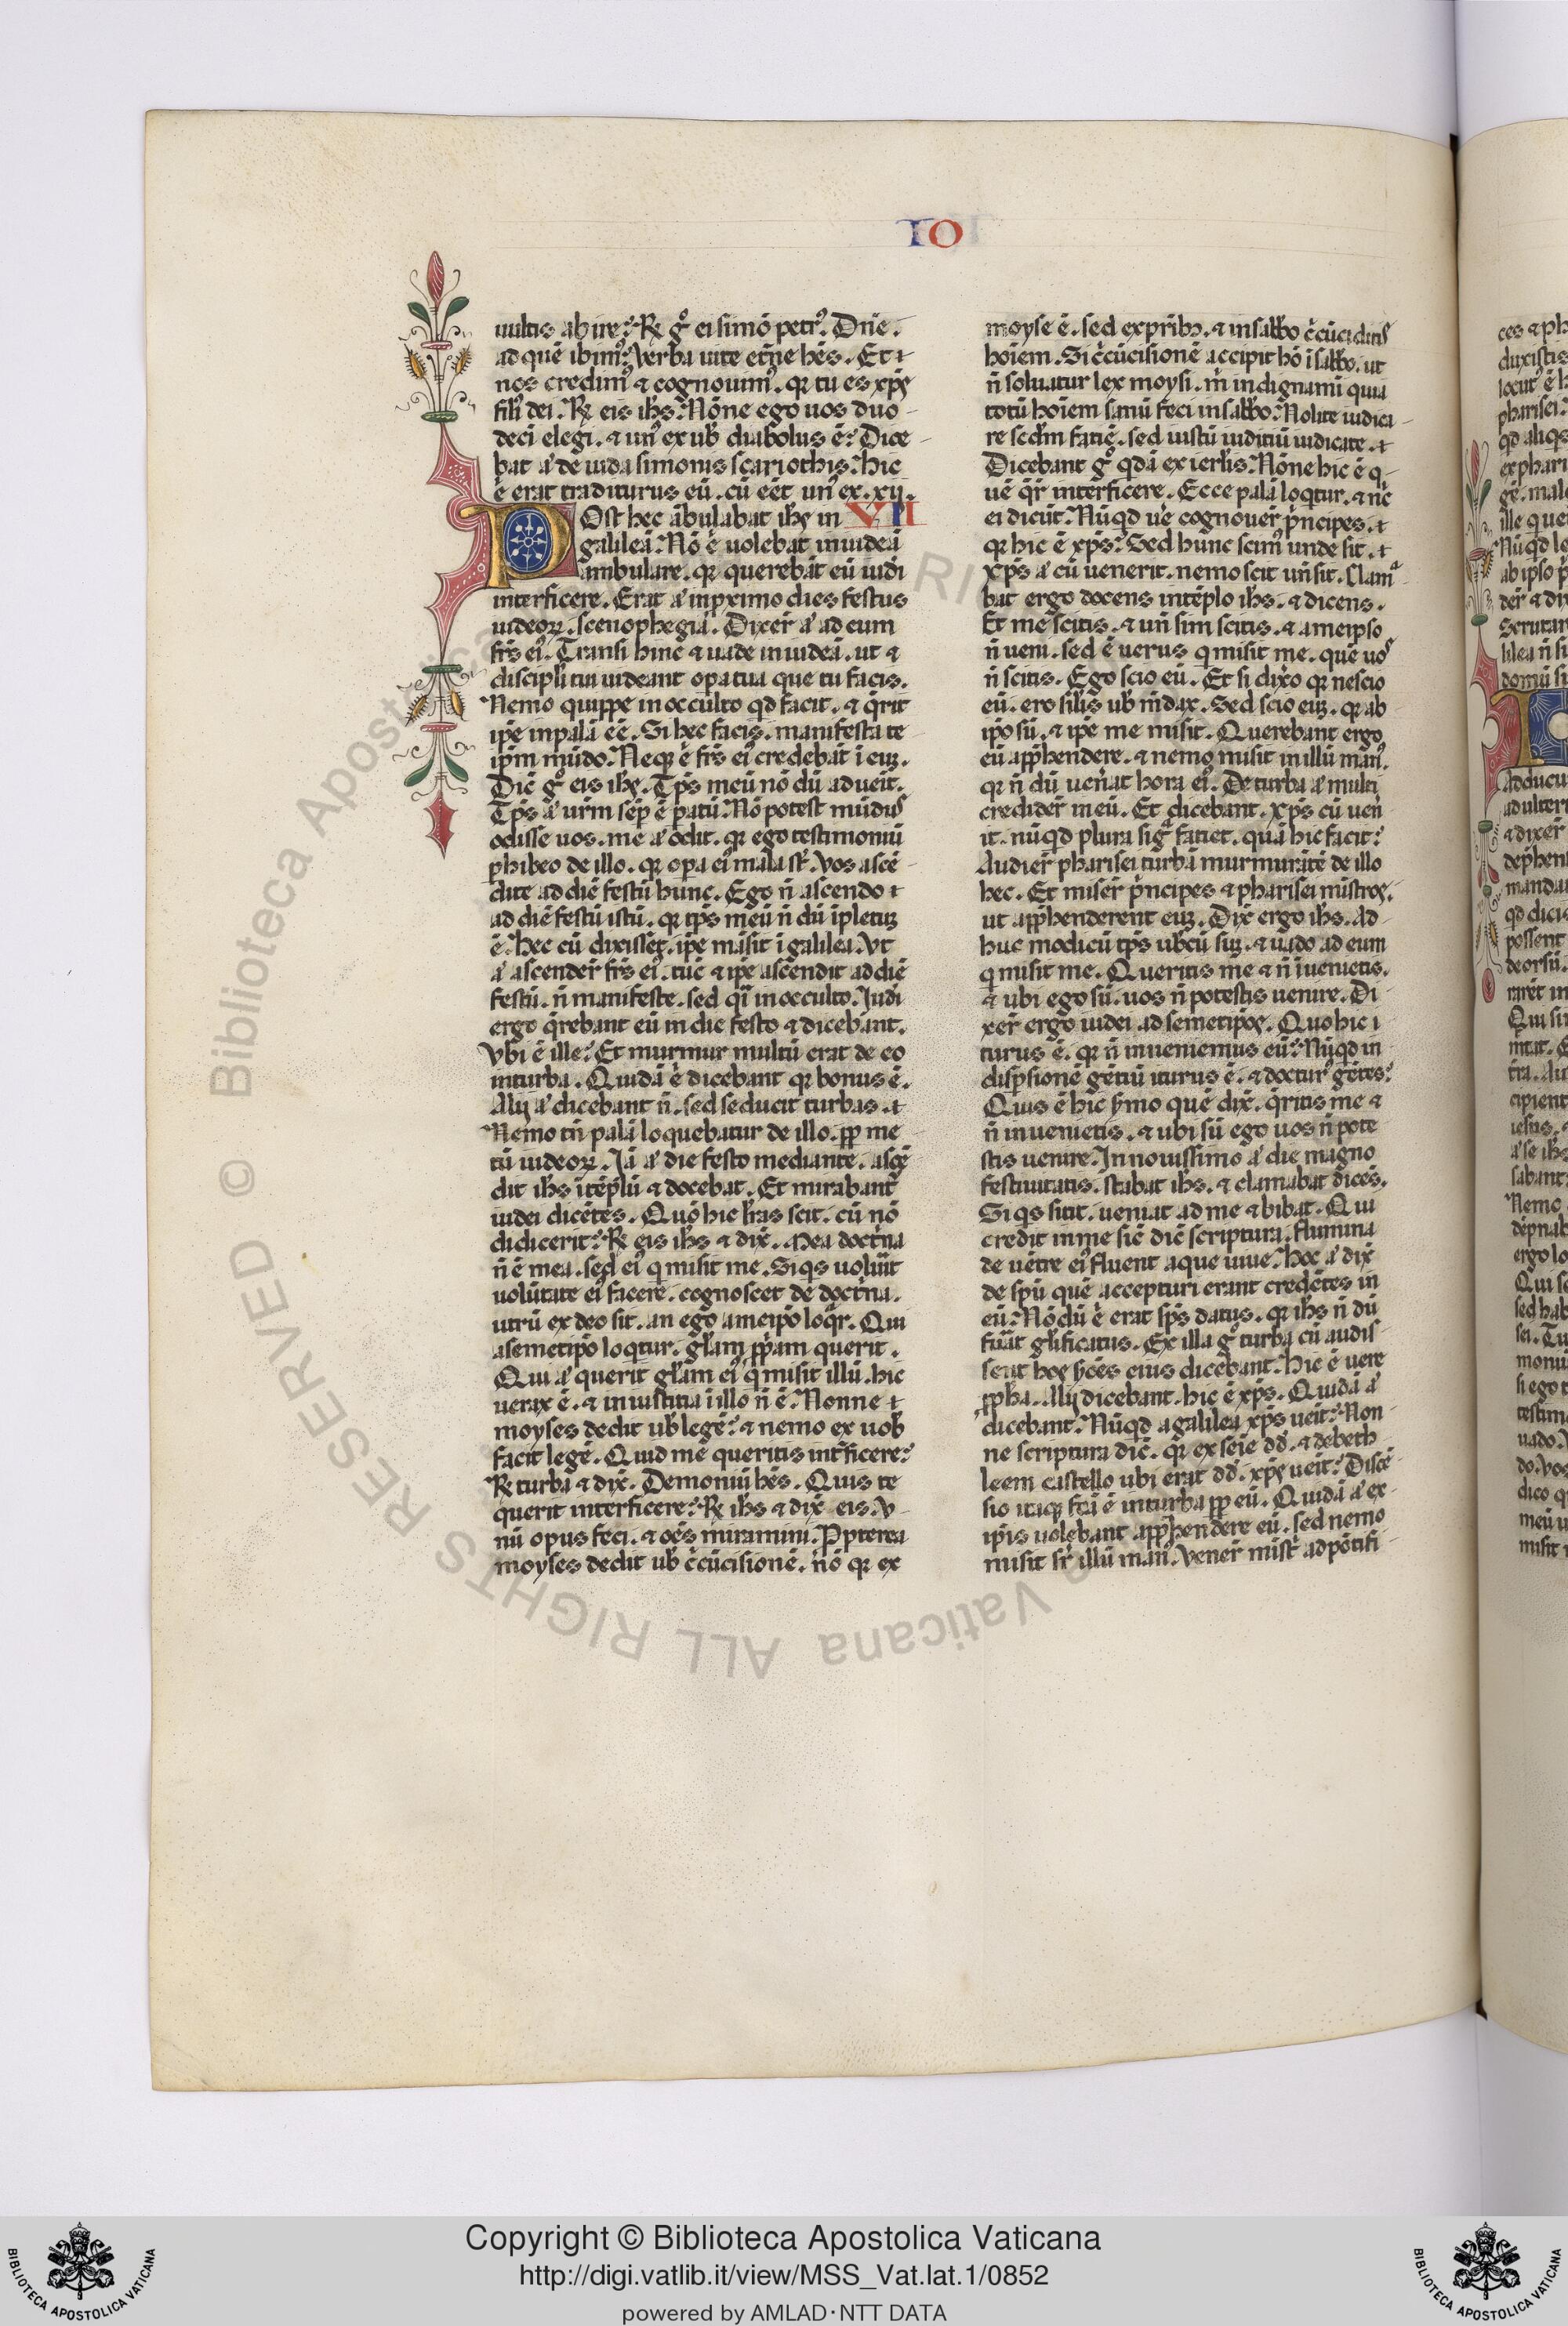 IO
uultis abire? Rx̄ gͦ ei simō petrꝰ. Dn̄e.
ad quē ibimꝰ? Verba uite et̄ne hēs. Et ⁊
nos credimꝰ & cognouimꝰ. qꝛ tu es xp̄ꝫ
fili dei. Rx̄ eis ih̄s. Nōne ego uos duo
decī elegi. & unꝰ ex ub̄ diabolus ē? Dice
bat aͤ de iuda simonis scariothis. hic
ē erat traditurus eū. cū eēt unꝰ ex. xij.
POst hec ābulabat ih̄ꝫ in VII
galileā. Nō ē uolebat in iudeā
ambulare. qꝛ querebāt eū iudi
interficere. Erat aͤ in ꝓximo dies festus
iudeoꝝ. scenophegia. Dixer̄ aͤ ad eum
fr̄s eiꝰ. Transi hinc & uade in iudeā. ut &
discipl̄i tui uideant op̄a tua que tu facis.
Nemo quippe in occulto qd̄ facit. & q̄rit
ip̄e in palā eē. Si hec facis. manifesta te
ip̄m mūdo. Neqꝫ ē fr̄s eiꝰ credebāt ī euꝫ.
Dic̄ gͦ eis ih̄ꝫ. Tp̄s meū nō dū adueit.
Tp̄s aͤ ur̄m sēꝑ ē ꝑatū. Nō potest mūdus
odisse uos. me aͤ odit. qꝛ ego testimoniū
ꝑhibeo de illo. qꝛ op̄a eiꝰ mala st̄. Vos ascē
dite ad diē festū hunc. Ego n̄ ascendo ⁊
ad diē festū istū. qꝛ tp̄s meū n̄ dū īpletuꝫ
ē. hec cū dixissꝫ. ip̄e māsit ī galilea. Vt
aͤ ascender̄ fr̄s eiꝰ. tūc & ip̄e ascendit ad diē
festū. n̄ manifeste. sed qͣi in occulto. Iudi
ergo q̄rebant eū in die festo & dicebant.
Vbi ē ille? Et murmur multū erat de eo
in turba. Quidā ē dicebant qꝛ bonus ē.
Alij aͤ dicebant n̄. sed seducit turbas. ⁊
Nemo tn̄ palā loquebatur de illo. ꝓp̄ me
tū iudeoꝝ. Iā aͤ die festo mediante. ascē
dit ih̄s ī tēplū & docebat. Et mirabant̄
iudei dicētes. Quō hic lr̄as scit. cū nō
didicerit? Rx̄ eis ih̄s & dix̄. Mea doctͥna
n̄ ē mea. sed eiꝰ q̇ misit me. Si qs uolūit
uolūtatē eiꝰ facere. cognoscet de doctͥna.
utrū ex deo sit. an ego a meip̄o loq̄r. Qui
a semetip̄o loqtur. gl̄am ꝓp̄am querit.
Qui aͤ querit gl̄am eiꝰ q̇ misit illū. hic
uerax ē. & iniustitia ī illo n̄ ē. Nonne ⁊
moyses dedit ub̄ legē? & nemo ex uob̄
facit legē. Quid me queritis int̄ficere?
Rx̄ turba & dix̄. Demoniū hēs. Quis te
querit interficere? Rx̄ ih̄s & dix̄ eis. V
nū opus feci. & oēs miramini. Ꝓpterea
moyses dedit ub̄ cͥcūcisionē. nō qꝛ ex
moyse ē. sed ex pr̄ibꝫ. & in sabb̄o cͥcūciditis
hoīem. Si cͥcūcisionē accipit hō ī sabb̄o. ut
n̄ soluatur lex moysi. m̄ indignamī quia
totū hoīem sanū feci in sabb̄o? Nolite iudica
re scd̄m faciē. sed iustū iuditiū iudicate. ⁊
Dicebant gͦ qdā ex ierl̄is. Nōne hic ē q
uē q̄r̄ interficere. Ecce palā loqtur. & nͥc
ei dicūt. Nūqd uē cognouer̄ pͥncipes. ⁊
qꝛ hic ē xp̄s? Sed hunc scimꝰ unde sit. ⁊
Xp̄s aͤ cū uenerit. nemo scit un̄ sit. Clamͣ
bat ergo docens in tēplo ih̄s. & dicens.
Et me scitis. & un̄ sim scitis. & a meipso
n̄ ueni. sed ē uerus q̇ misit me. quē uos
n̄ scitis. Ego scio eū. Et si dixo qꝛ nescio
eū. ero sil̄is ub̄ mēdax. Sed scio euꝫ. qꝛ ab
ip̄o sū. & ip̄e me misit. Querebant ergo
eū app̄hendere. & nemo misit in illū manꝰ.
qꝛ n̄ dū uen̄at hora eiꝰ. De turba aͤ multi
credider̄ in eū. Et dicebant. xp̄s cū uen̄
it. nūqd plura sigͣ faciet. quā hic facit?
Audier̄ pharisei turbā murmurātē de illo
hec. Et miser̄ pͥncipes & pharisei mīstros.
ut app̄henderent euꝫ. Dix̄ ergo ih̄s. Ad
huc modicū tp̄s ub̄cū suꝫ. & uado ad eum
q̇ misit me. Queritis me & n̄ īuenietis.
& ubi ego sū. uos n̄ potestis uenire. Di
xer̄ ergo iudei ad semetip̄os. Quo hic i
turus ē. qꝛ n̄ inueniemus eū? Nūqd in
disp̄sionē gētiū iturus ē. & docturꝰ gētes?
Quis ē hic ẜmo quē dix̄. q̄ritis me &
n̄ inuenietis. & ubi sū ego uos n̄ pote
stis uenire. In nouissimo aͤ die magno
festiuitatis. stabat ih̄s. & clamabat dicēs.
Si qs sitit. ueniat ad me & bibat. Qui
credit in me sic̄ dic̄ scriptura. flumina
de uētre eiꝰ fluent aque uiue. Hoc aͤ dix̄
de sp̄u quē accepturi erant credētes in
eū. Nōdū ē erat sp̄s datus. qꝛ ih̄s n̄ dū
fūat gl̄ificatus. Ex illa gͦ turba cū audis
sent hos ẜōes eius dicebant. hic ē uere
ꝓph̄a. Alij dicebant. hic ē xp̄s. Quidā aͤ
dicebant. Nūqd a galilea xp̄s ueīt? Non
ne scriptura dic̄. qꝛ ex seīe dd̄. & de beth
leem castello ubi erat dd̄. xp̄ꝫ ueīt? Discē
sio itaqꝫ fc̄ā ē in turba ꝓp̄ eū. Quidā aͤ ex
ip̄is uolebant app̄hendere eū. sed nemo
misit sr̄ illū manꝰ. Vener̄ mist̄ͥ ad pōtifi
Copyright © Biblioteca Apostolica Vaticana
http://digi.vatlib.it/view/MSS_Vat.lat.1/0852
powered by AMLAD·NTT DATA
© Biblioteca Apostolica Vaticana ALL RIGHTS RESERVED
BIBLIOTECA APOSTOLICA VATICANA
BIBLIOTECA APOSTOLICA VATICANA